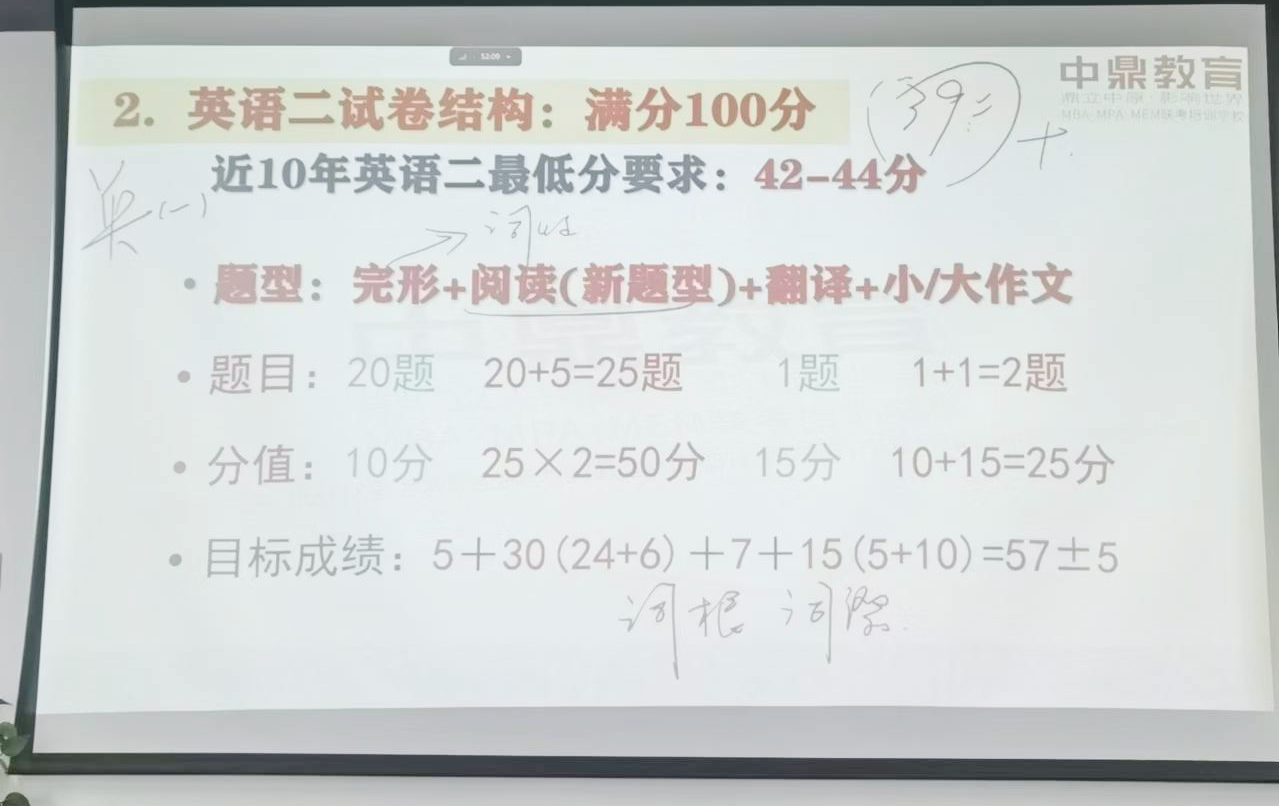 52:09
中鼎教育
鼎立中原·影响世界
MBA·MPA·MEM联考培训学校
2. 英语二试卷结构：满分100分
近10年英语二最低分要求：42-44分
英(一)
词性
• 题型：完形+阅读(新题型)+翻译+小/大作文
• 题目：20题 20+5=25题 1题 1+1=2题
• 分值：10分 25×2=50分 15分 10+15=25分
• 目标成绩：5+30(24+6)+7+15(5+10)=57±5
词根 词缀